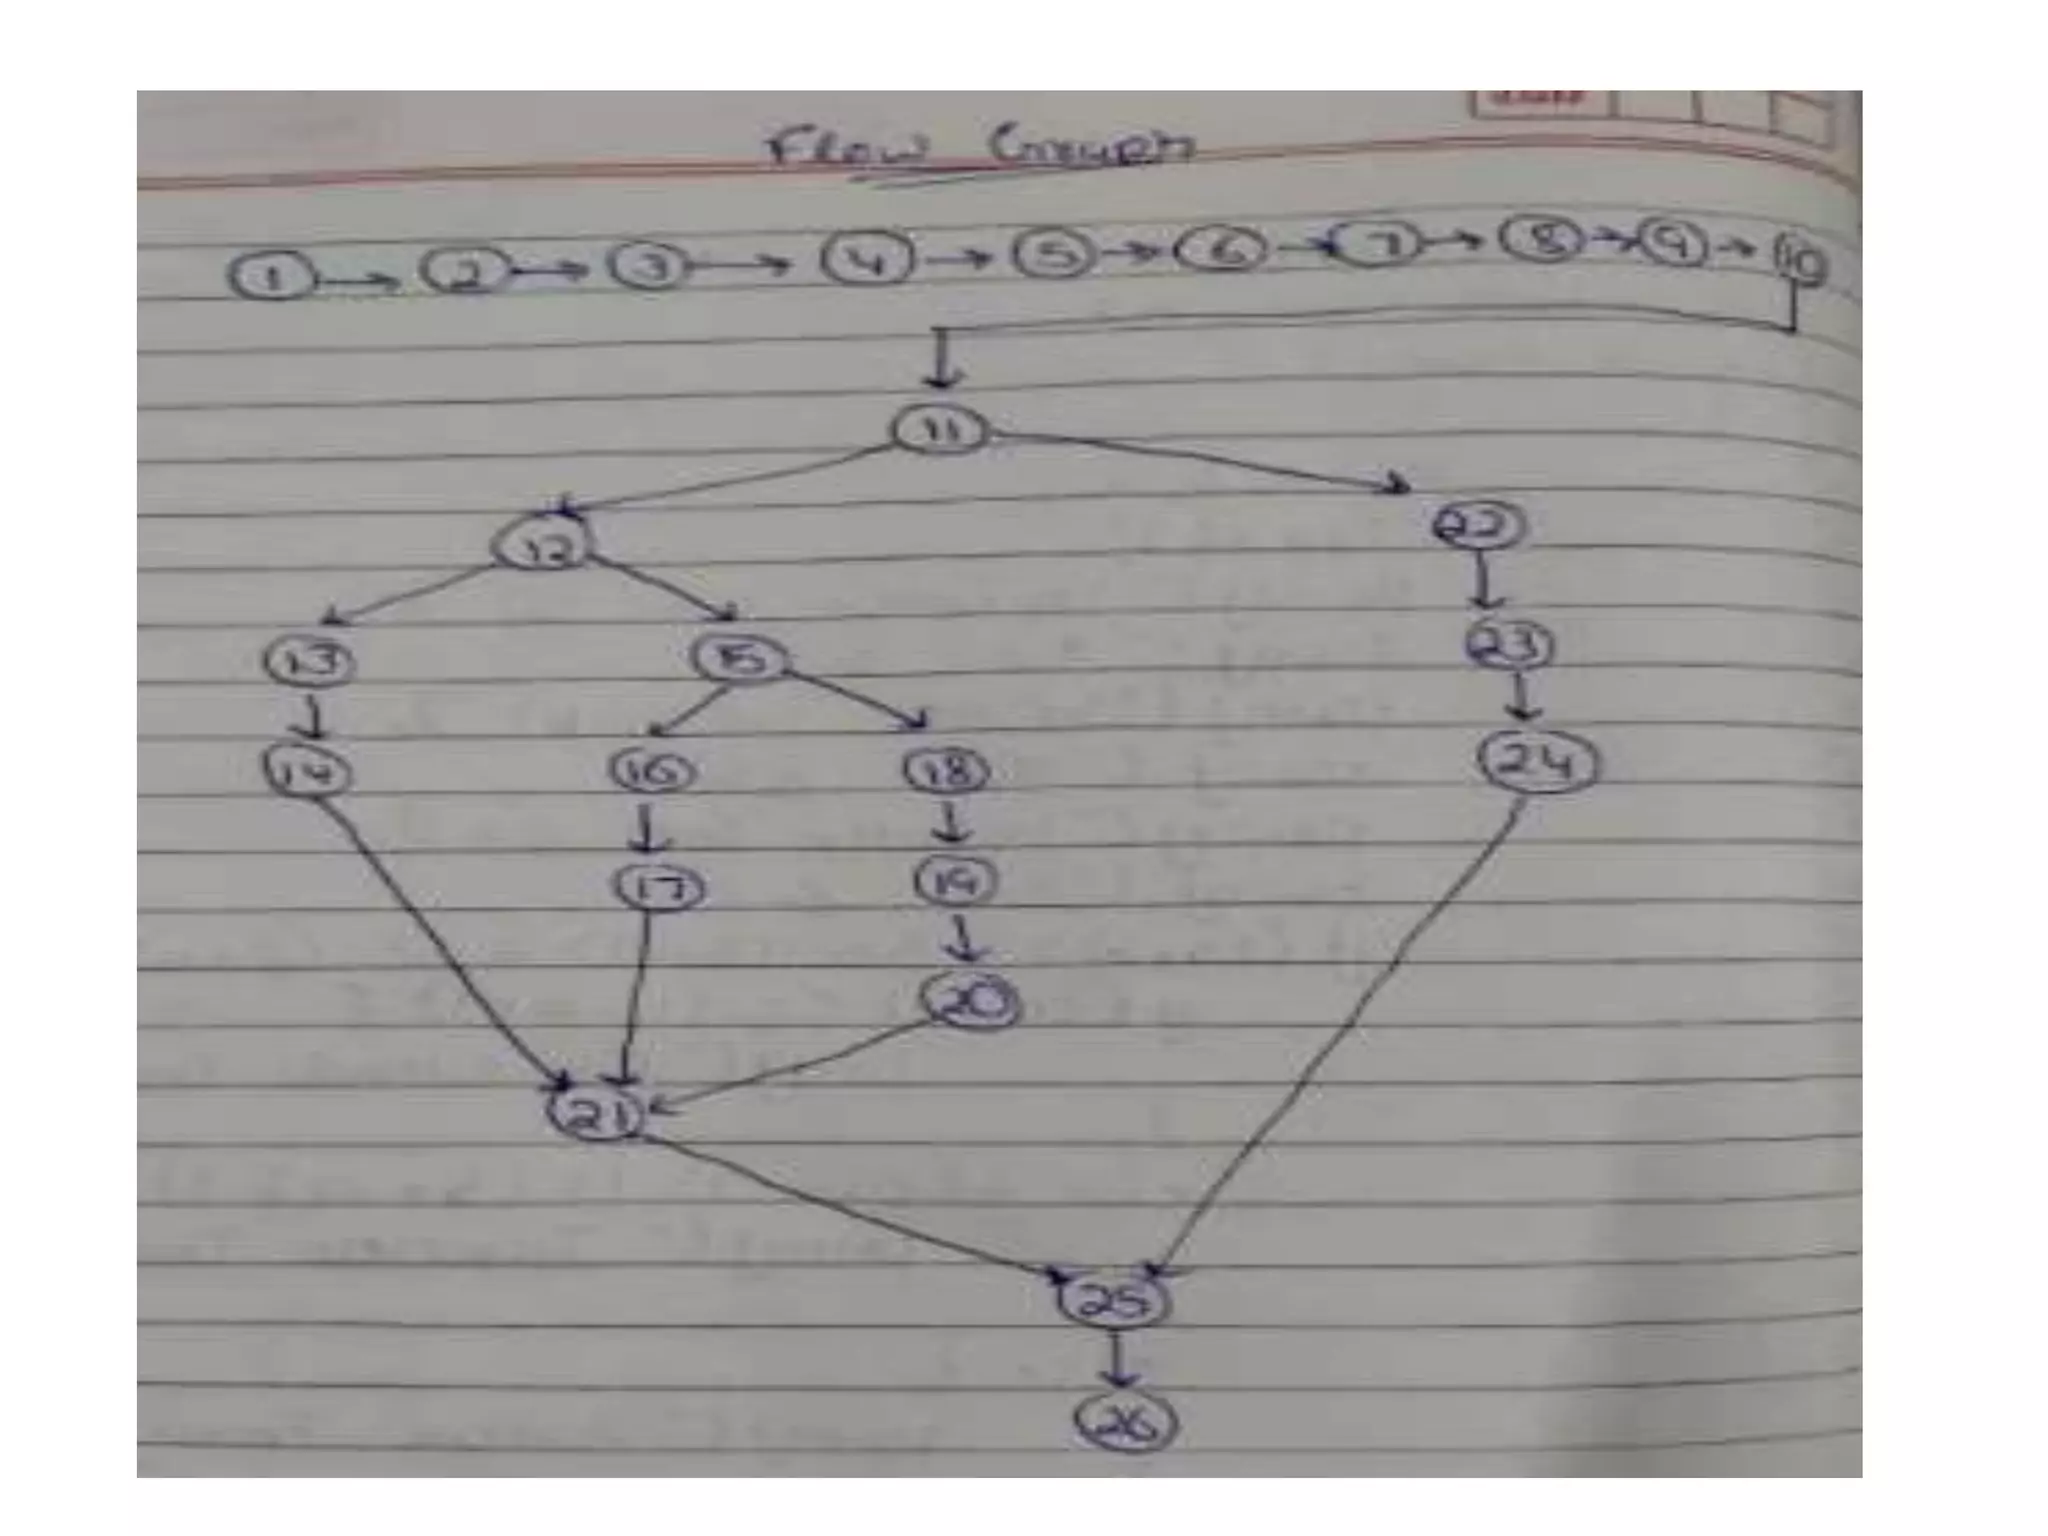 Flow Graph
1 → 2 → 3 → 4 → 5 → 6 → 7 → 8 → 9 → 10
11
12 22
13 15 23
14 16 18 24
17 19
20
21
25
26